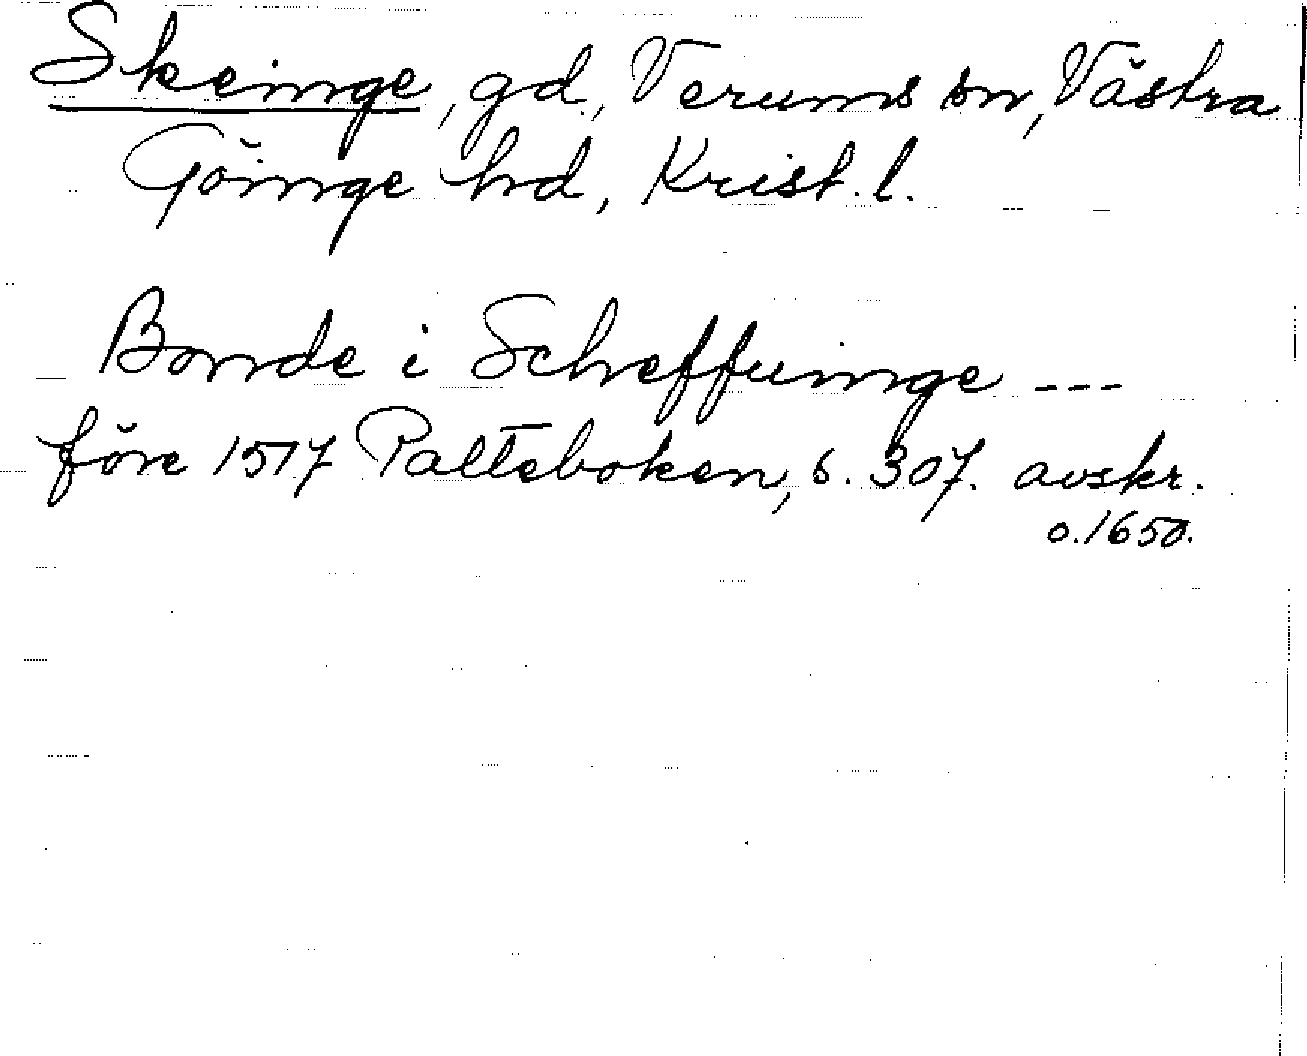 Skeinge, gd, Verums sn, Västra
Göinge hd, Krist. l.
Bonde i Scheffuinge ---
före 1517 Palteboken, s. 307. avskr.
o. 1650.